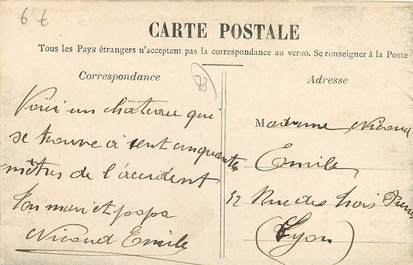 6 €
CARTE POSTALE
Tous les Pays étrangers n'acceptent pas la correspondance au verso. Se renseigner à la Poste
Correspondance
73
Adresse
Voici un château qui
se trouve à cent cinquante
mètres de l'accident
Ton mari et papa
Nicoud Emile
Madame Nicoud
Emile
Rue des trois Pierres
(Lyon)